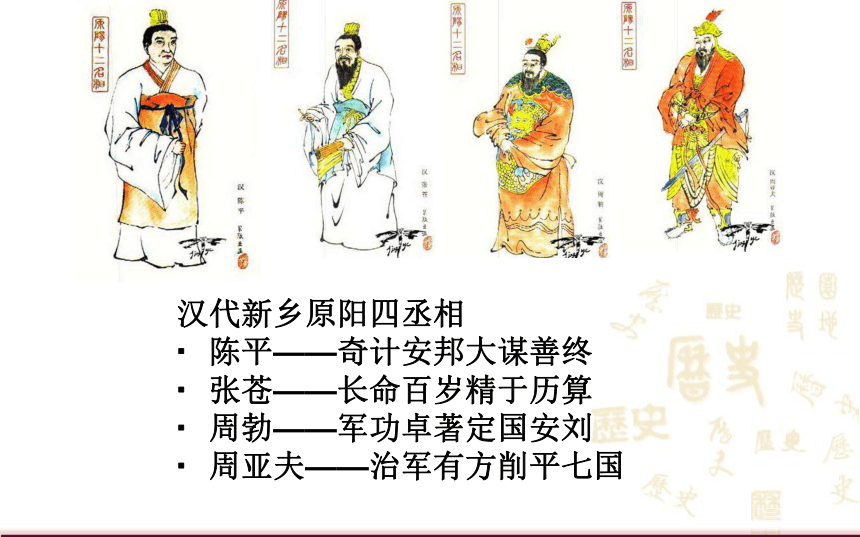 原陽十二名相
原陽十二名相
原陽十二名相
原陽十二名相
汉 陈平
汉 张苍
汉 周勃
汉 周亚夫
汉代新乡原阳四丞相
▪ 陈平——奇计安邦大谋善终
▪ 张苍——长命百岁精于历算
▪ 周勃——军功卓著定国安刘
▪ 周亚夫——治军有方削平七国
歷史
歷史
歷史
歷史
歷史
歷史